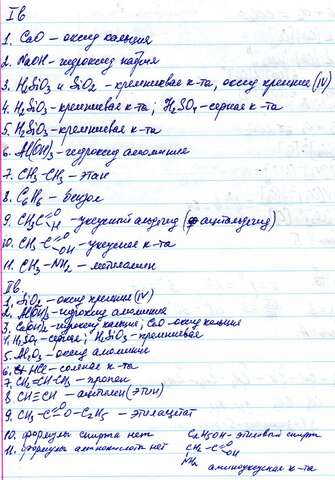 I в
1. CaO – оксид кальция
2. NaOH – гидроксид натрия
3. H₂SiO₃ и SiO₂ – кремниевая к-та, оксид кремния (IV)
4. H₂SiO₃ – кремниевая к-та; H₂SO₄ – серная к-та
5. H₂SiO₃ – кремниевая к-та
6. Al(OH)₃ – гидроксид алюминия
7. CH₃-CH₃ – этан
8. C₆H₆ – бензол
9. CH₃C=O H – уксусный альдегид (ацетальдегид)
10. CH₃-C=O OH – уксусная к-та
11. CH₃-NH₂ – метиламин
II в.
1. SiO₂ – оксид кремния (IV)
2. Al(OH)₃ – гидроксид алюминия
3. Ca(OH)₂ – гидроксид кальция; CaO – оксид кальция
4. H₂SO₄ – серная; H₂SiO₃ – кремниевая
5. Al₂O₃ – оксид алюминия
6. HCl – соляная к-та
7. CH₂=CH-CH₃ – пропен
8. CH≡CH – ацетилен (этин)
9. CH₃-C=O O-C₂H₅ – этилацетат
10. формулы спирта нет C₂H₅OH – этиловый спирт
11. формулы аминокислоты нет CH₂-C=O OH
NH₂ аминоуксусная к-та